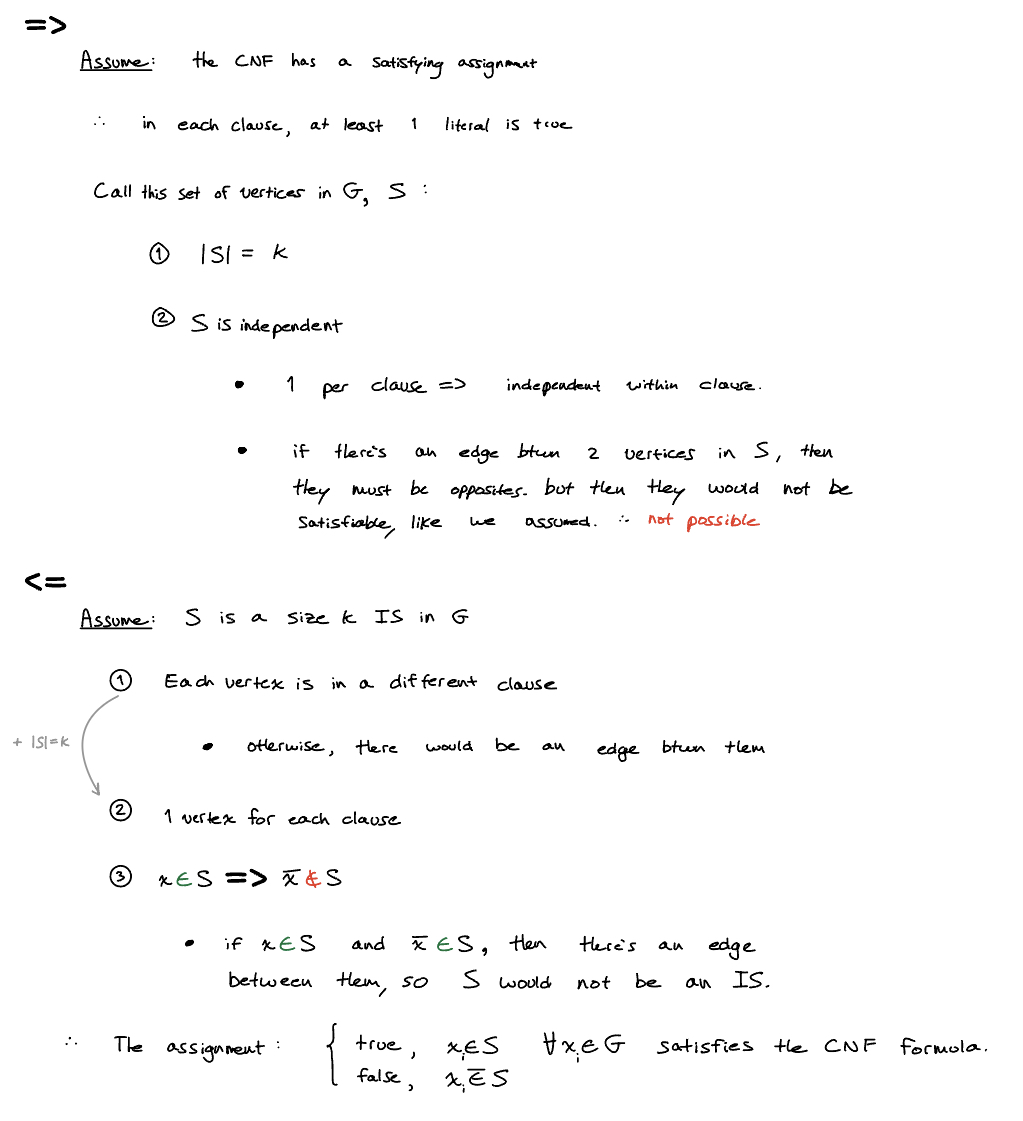 =>
Assume: the CNF has a satisfying assignment
∴ in each clause, at least 1 literal is true
Call this set of vertices in G, S :
① |S| = k
② S is independent
• 1 per clause => independent within clause.
• if there's an edge btwn 2 vertices in S, then
they must be opposites. but then they would not be
satisfiable, like we assumed. ∴ not possible
<=
Assume: S is a size k IS in G
① Each vertex is in a different clause
+ |S|=k
• otherwise, there would be an edge btwn them
② 1 vertex for each clause
③ x∈S => x̅∉S
• if x∈S and x̅∈S, then there's an edge
between them, so S would not be an IS.
∴ The assignment : { true, xᵢ∈S ∀xᵢ∈G satisfies the CNF formula.
false, xᵢ∈̅S